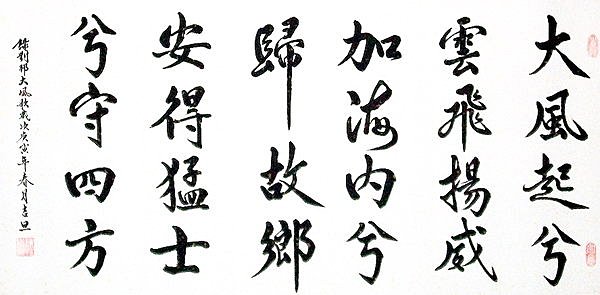 大風起兮
雲飛揚威
加海内兮
歸故鄉
安得猛士
兮守四方
錄劉邦大風歌歲次庚寅年春月吉旦